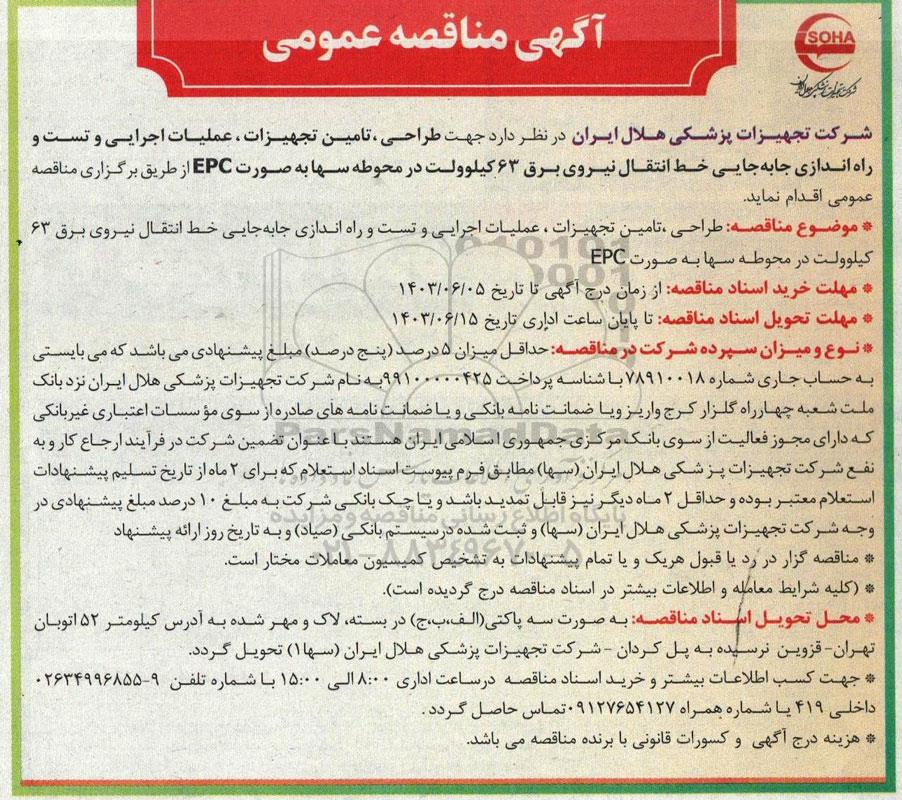 آگهی مناقصه عمومی
SOHA
شرکت تجهیزات پزشکی هلال ایران در نظر دارد جهت طراحی ،تامین تجهیزات ، عملیات اجرایی و تست و
راه اندازی جابه‌جایی خط انتقال نیروی برق ۶۳ کیلوولت در محوطه سها به صورت EPC از طریق برگزاری مناقصه
عمومی اقدام نماید.
* موضوع مناقصه: طراحی ،تامین تجهیزات ، عملیات اجرایی و تست و راه اندازی جابه‌جایی خط انتقال نیروی برق ۶۳
کیلوولت در محوطه سها به صورت EPC
* مهلت خرید اسناد مناقصه: از زمان درج آگهی تا تاریخ ۱۴۰۳/۰۶/۰۵
* مهلت تحویل اسناد مناقصه: تا پایان ساعت اداری تاریخ ۱۴۰۳/۰۶/۱۵
* نوع و میزان سپرده شرکت در مناقصه: حداقل میزان ۵ درصد (پنج درصد) مبلغ پیشنهادی می باشد که می بایستی
به حساب جاری شماره ۷۸۹۱۰۰۱۸ با شناسه پرداخت ۹۹۱۰۰۰۰۰۴۲۵ به نام شرکت تجهیزات پزشکی هلال ایران نزد بانک
ملت شعبه چهارراه گلزار کرج واریز ویا ضمانت نامه بانکی و یا ضمانت نامه های صادره از سوی مؤسسات اعتباری غیربانکی
که دارای مجوز فعالیت از سوی بانک مرکزی جمهوری اسلامی ایران هستند با عنوان تضمین شرکت در فرآیند ارجاع کار و به
نفع شرکت تجهیزات پزشکی هلال ایران (سها) مطابق فرم پیوست اسناد استعلام که برای ۲ ماه از تاریخ تسلیم پیشنهادات
استعلام معتبر بوده و حداقل ۲ ماه دیگر نیز قابل تمدید باشد و یا چک بانکی شرکت به مبلغ ۱۰ درصد مبلغ پیشنهادی در
وجه شرکت تجهیزات پزشکی هلال ایران (سها) و ثبت شده درسیستم بانکی (صیاد) و به تاریخ روز ارائه پیشنهاد
* مناقصه گزار در رد یا قبول هریک و یا تمام پیشنهادات به تشخیص کمیسیون معاملات مختار است.
* (کلیه شرایط معامله و اطلاعات بیشتر در اسناد مناقصه درج گردیده است).
* محل تحویل اسناد مناقصه: به صورت سه پاکتی(الف،ب،ج) در بسته، لاک و مهر شده به آدرس کیلومتر ۵۲ اتوبان
تهران- قزوین نرسیده به پل کردان - شرکت تجهیزات پزشکی هلال ایران (سها۱) تحویل گردد.
* جهت کسب اطلاعات بیشتر و خرید اسناد مناقصه درساعت اداری ۸:۰۰ الی ۱۵:۰۰ با شماره تلفن ۹-۰۲۶۳۴۹۹۶۸۵۵
داخلی ۴۱۹ یا شماره همراه ۰۹۱۲۷۶۵۴۱۲۷ تماس حاصل گردد .
* هزینه درج آگهی و کسورات قانونی با برنده مناقصه می باشد.
ParsNamadData
پایگاه اطلاع رسانی مناقصه و مزایده
۰۲۱-۸۸۳۴۹۶۷۰-۵